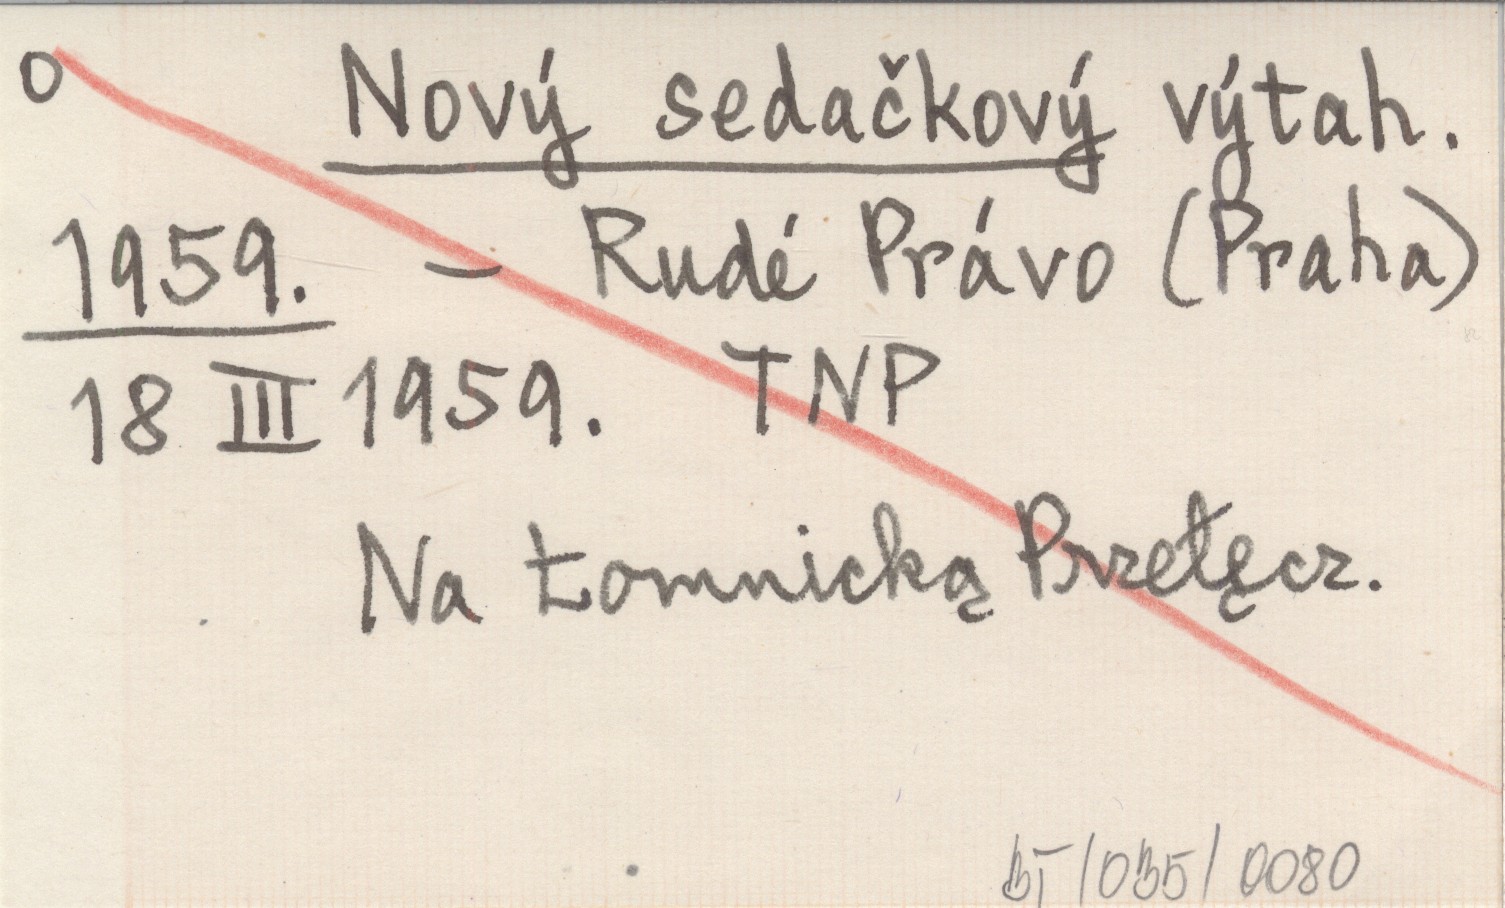 o Nový sedačkový výtah.
1959. – Rudé Právo (Praha)
18 III 1959. TNP
Na Łomnicką Przełęcz.
BT/035/0080